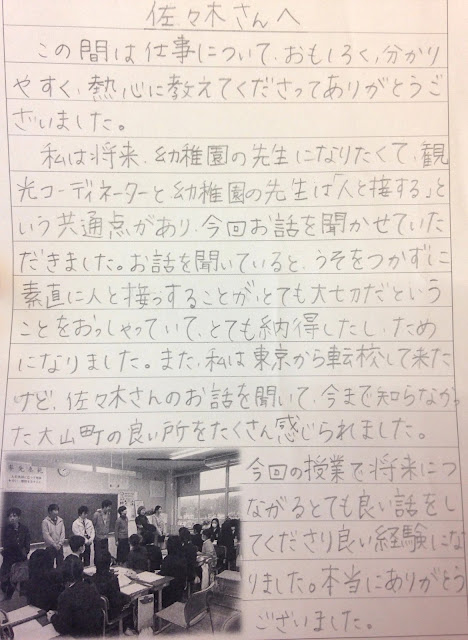 佐々木さんへ
この間は仕事について、おもしろく、分かり
やすく、熱心に教えてくださってありがとうご
ざいました。
私は将来、幼稚園の先生になりたくて、観
光コーディネーターと幼稚園の先生は「人と接する」と
いう共通点があり、今回お話を聞かせていた
だきました。お話を聞いていると、うそをつかずに
素直に人と接っすることが、とても大切だという
ことをおっしゃっていて、とても納得したし、ため
になりました。また、私は東京から転校して来た
けど、佐々木さんのお話を聞いて、今まで知らなかっ
た大山町の良い所をたくさん感じられました。
今回の授業で将来につ
ながるとても良い話をし
てくださり良い経験にな
りました。本当にありがとう
ございました。